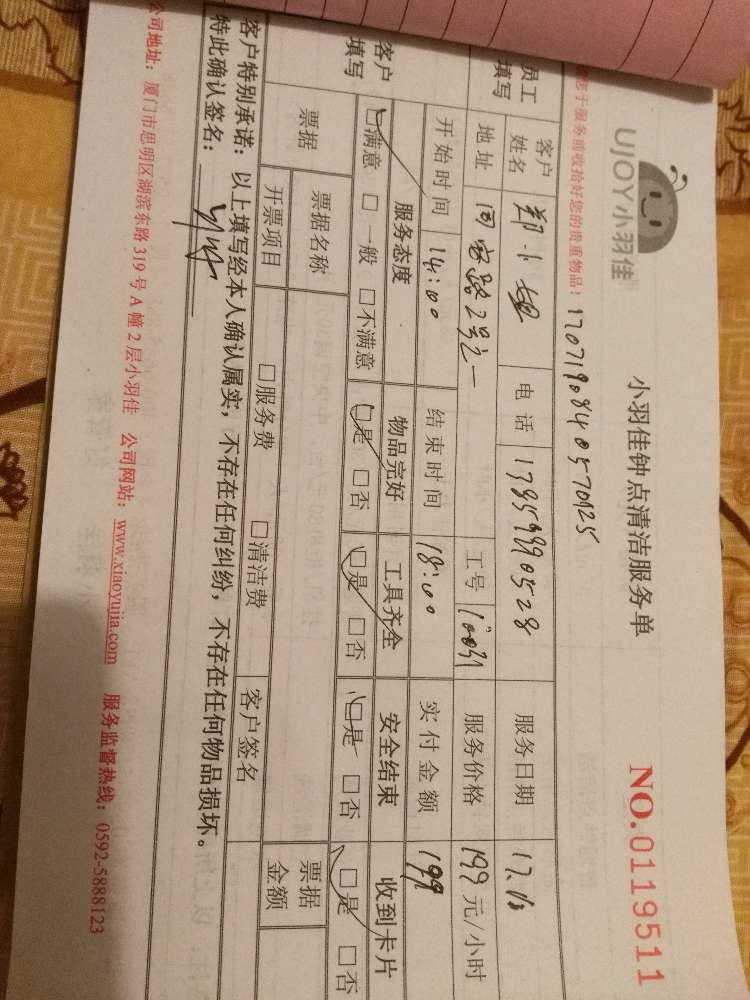 UJOY小羽佳
小羽佳钟点清洁服务单
NO.0119511
于服务前收拾好您的贵重物品！
员工填写
客户姓名 郑小姐 电话 13859990528 服务日期
地址 2号之一 工号 服务价格 199 元/小时
开始时间 14:00 结束时间 18:00 实付金额 199
客户填写
服务态度 物品完好 工具齐全 安全结束 收到卡片
□满意 □一般 □不满意 □是 □否 □是 □否 □是 □否 □是 □否
票据 票据名称 票据金额
开票项目 □服务费 □清洁费 客户签名
客户特别承诺：以上填写经本人确认属实，不存在任何纠纷，不存在任何物品损坏。
特此确认签名：
公司地址：厦门市思明区湖滨东路319号A幢2层小羽佳 公司网站：www.xiaoyujia.com 服务监督热线：0592-5888123